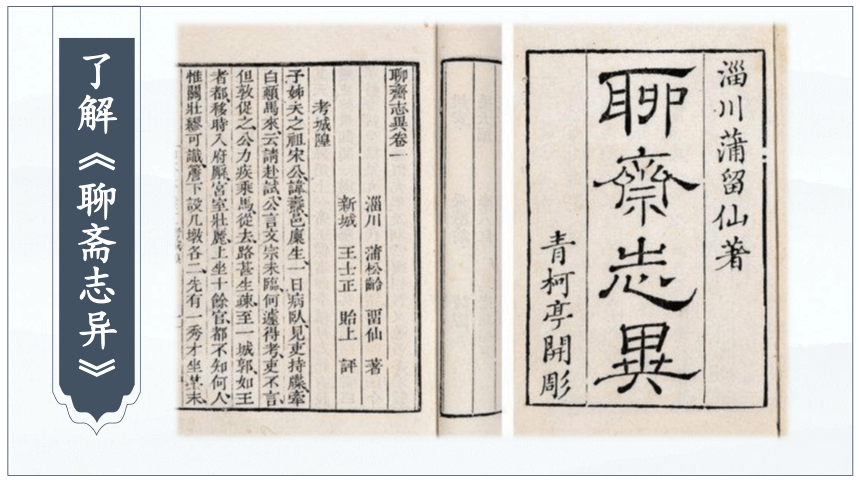 了解《聊斋志异》
聊齋志異卷一
淄川　蒲松齡　留仙　著
新城　王士正　貽上　評
考城隍
子姊夫之祖宋公諱燾邑廩生一日病臥見吏持牒牽
白顛馬來云請赴試公言文宗未臨何遽得考吏不言
但敦促之公力疾乘馬從去路甚生疎至一城郭如王
者都移時入府廨宮室壯麗上坐十餘官都不知何人
惟關壯繆可識簷下設几墩各二先有一秀才坐其末
淄川蒲留仙著
聊齋志異
青柯亭開彫